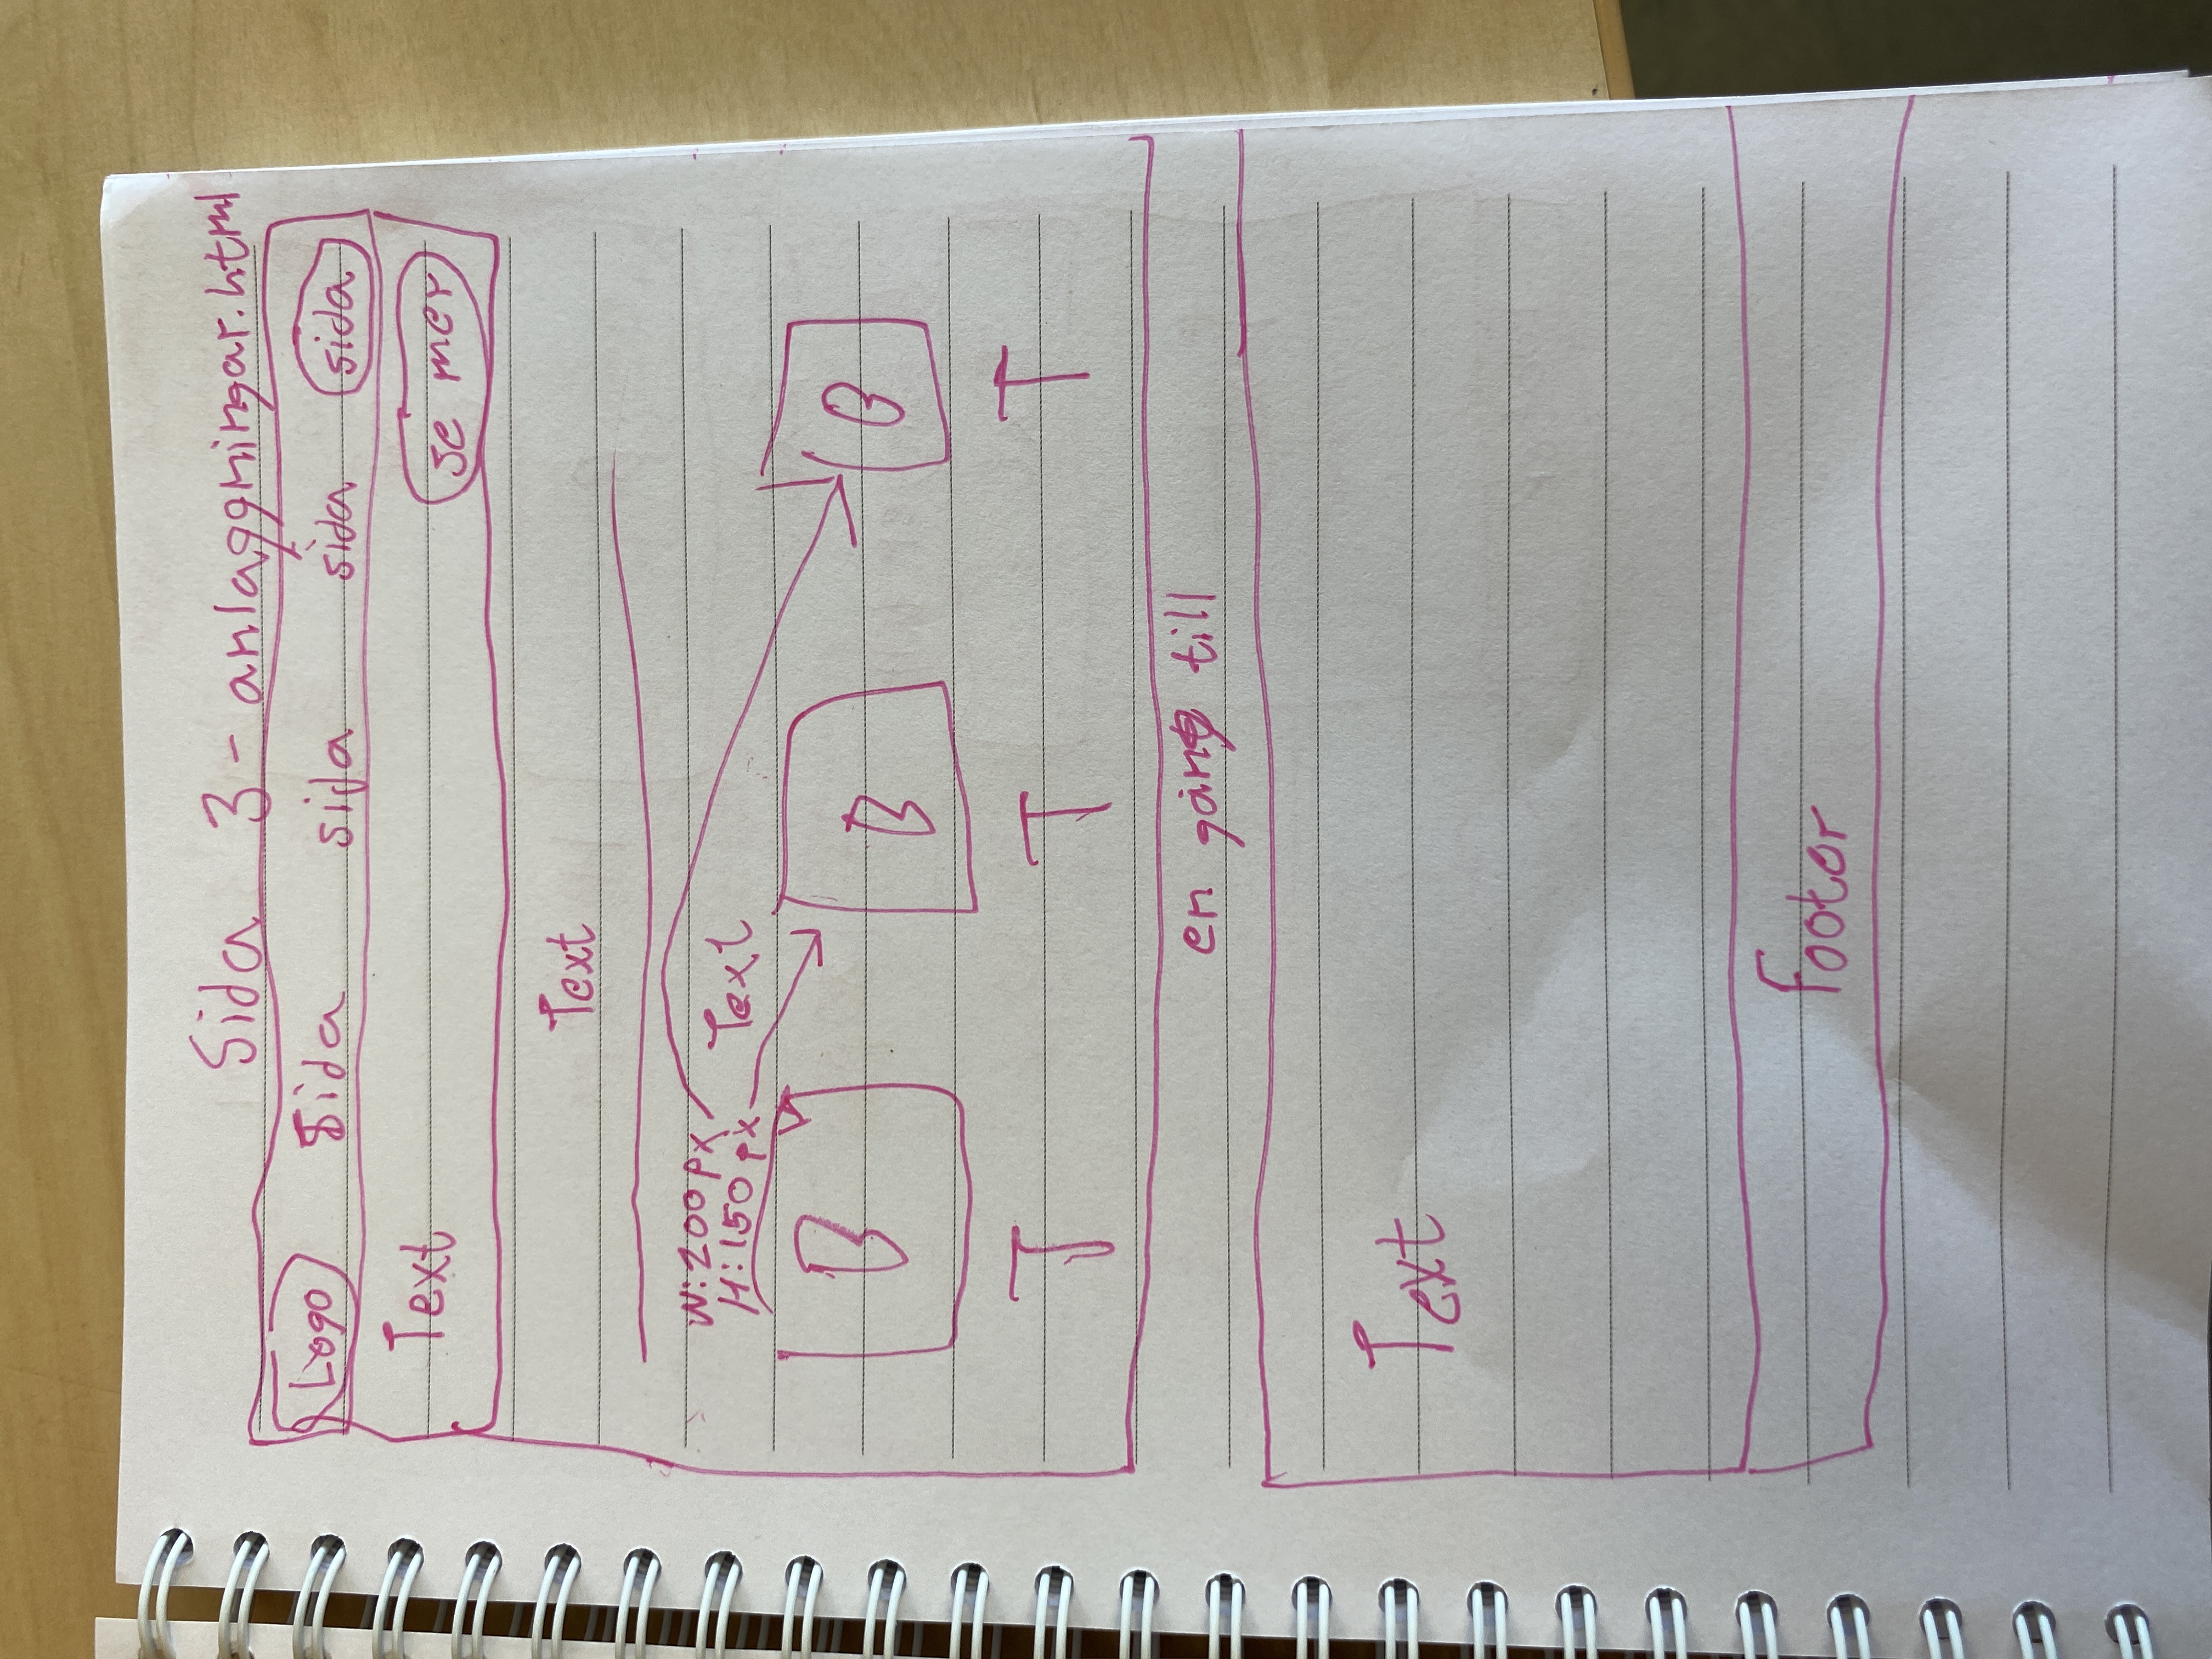 Sida 3 - anlaggningar.html
Logo Sida sida sida sida
Text se mer
Text
W: 200 px
H: 150 px Text
B B B
T T T
en gång till
Text
Footer